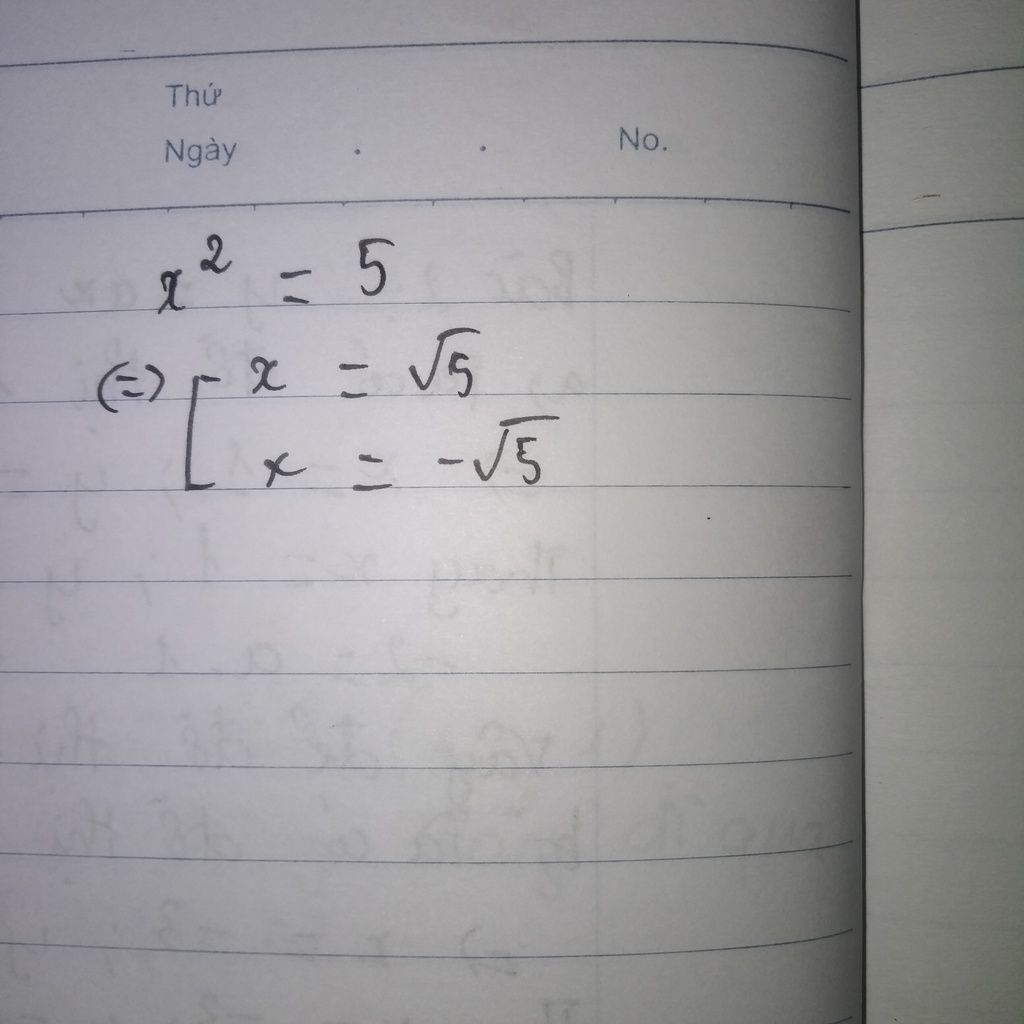 Thứ
Ngày . . No.
x² = 5
(=) [ x = √5
x = -√5